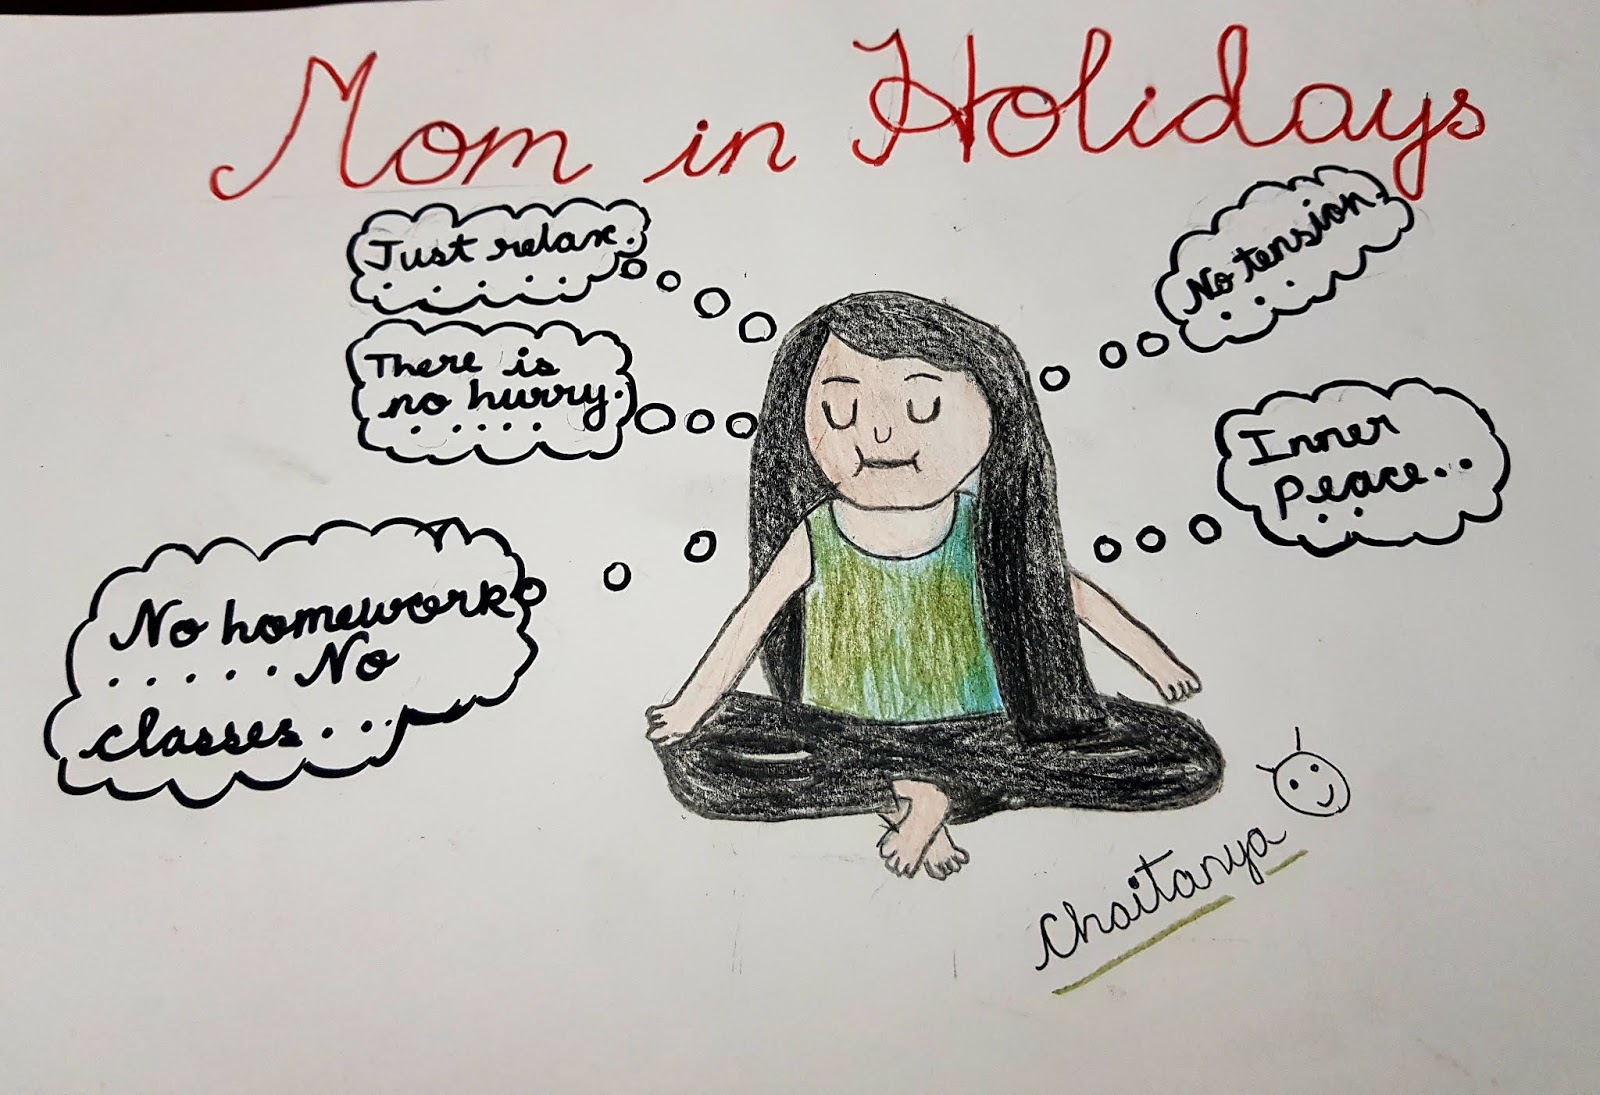 Mom in Holidays
Just relax.
. . . . . .
There is
no hurry.
. . . . .
No homework
. . . . . No
classes . . .
No tension.
. . .
Inner
Peace. . .
. .
Chaitanya